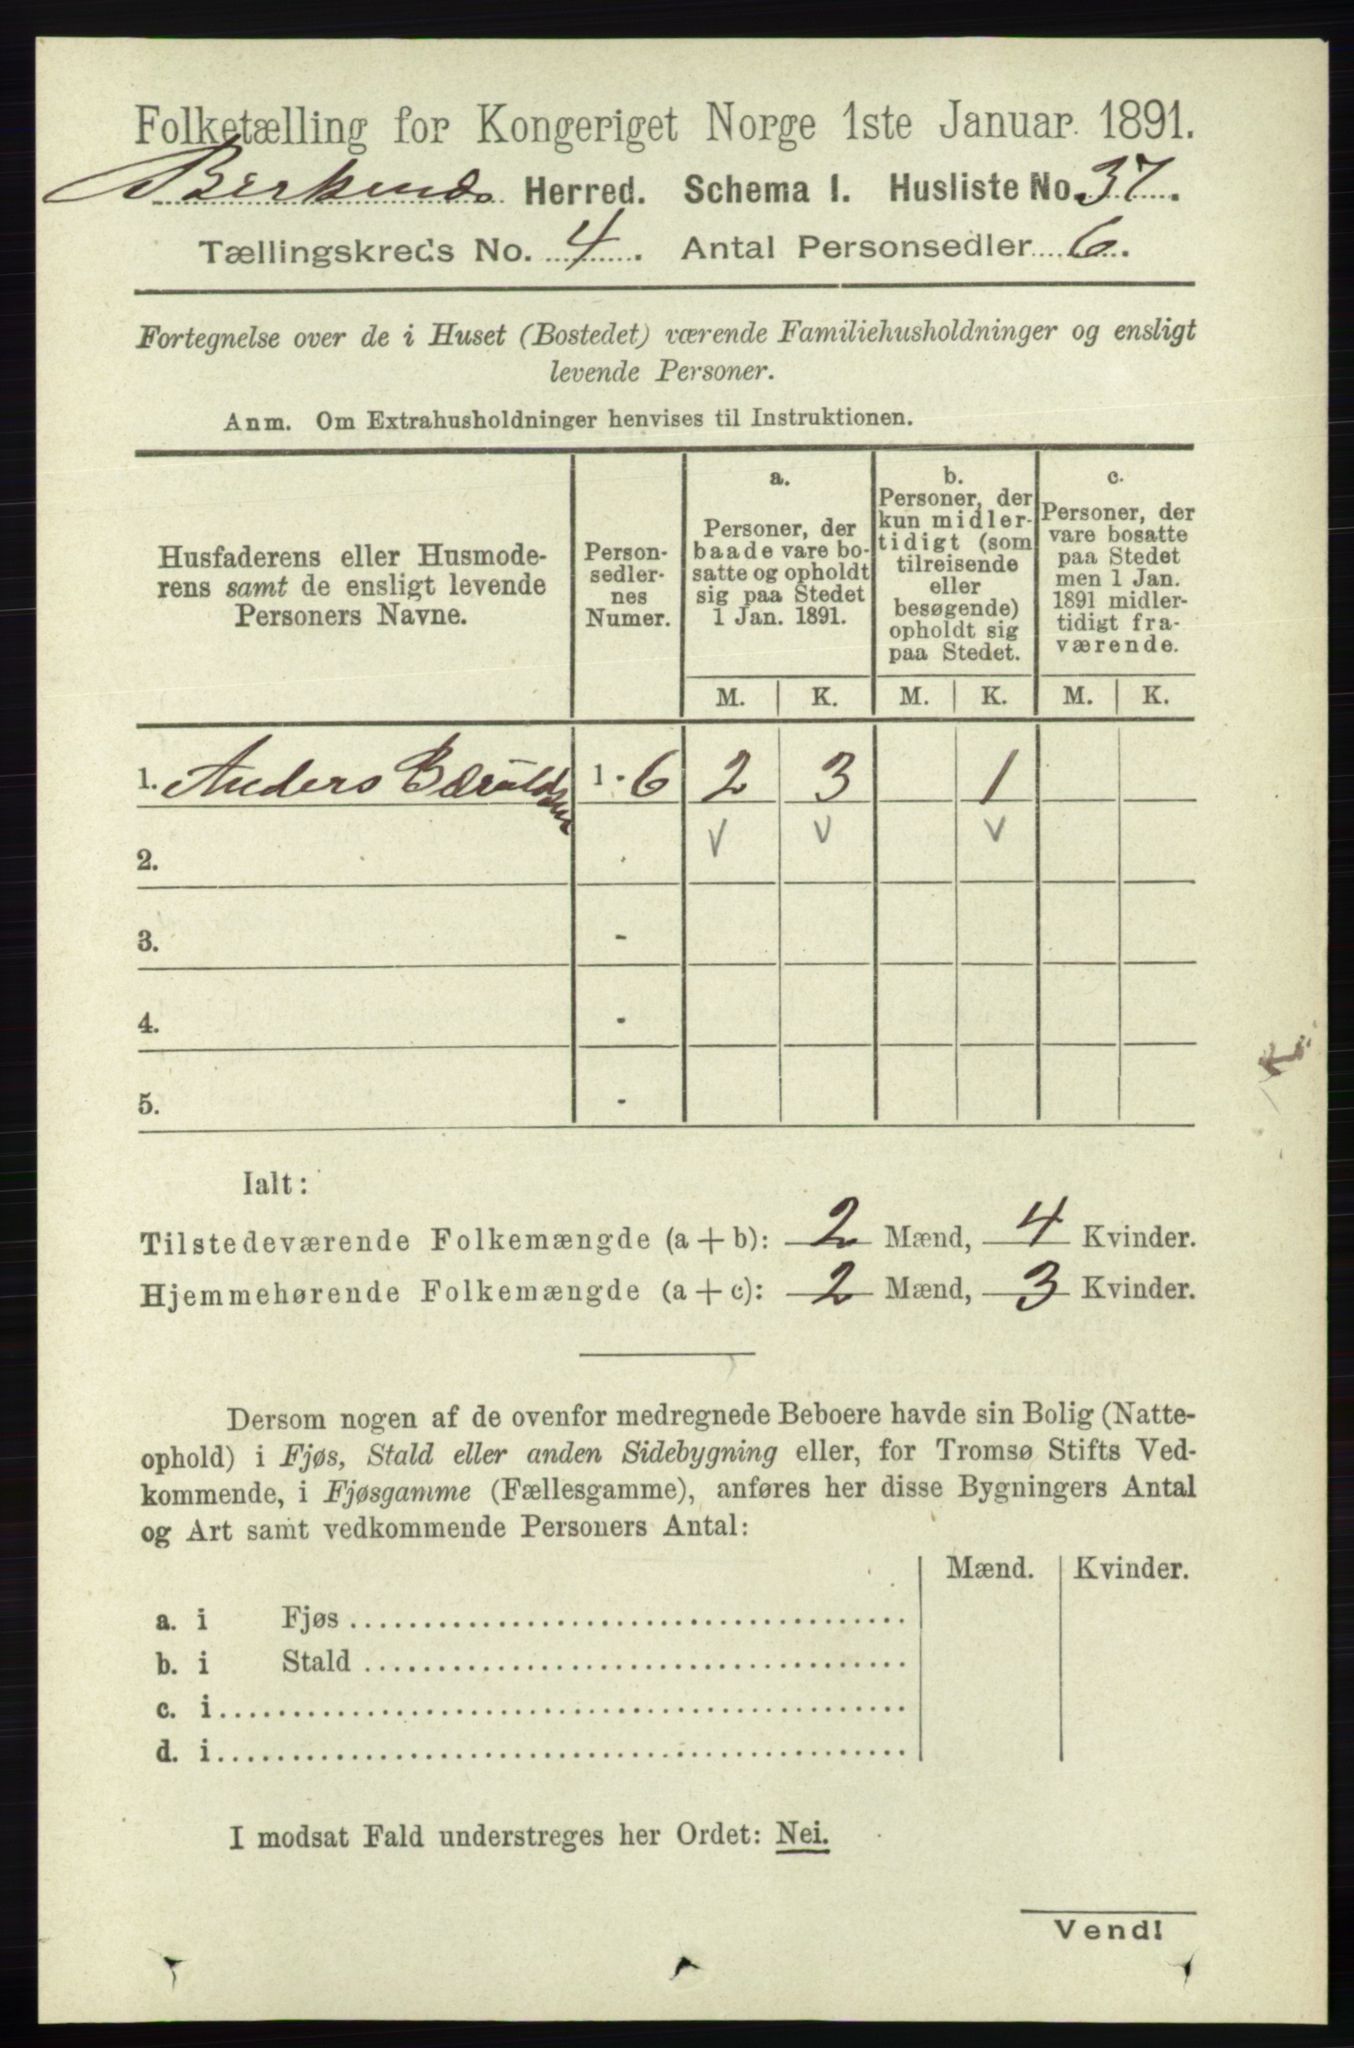 Folketælling for Kongeriget Norge 1ste Januar 1891.
Herred. Schema I. Husliste No. 37.
Tællingskreds No. 4. Antal Personsedler 6.
Fortegnelse over de i Huset (Bostedet) værende Familiehusholdninger og ensligt
levende Personer.
Anm. Om Extrahusholdninger henvises til Instruktionen.
Husfaderens eller Husmode-
rens samt de ensligt levende
Personers Navne.
Person-
sedler-
nes
Numer.
a.
Personer, der
baade vare bo-
satte og opholdt
sig paa Stedet
1 Jan. 1891.
b.
Personer, der
kun midler-
tidigt (som
tilreisende
eller
besøgende)
opholdt sig
paa Stedet.
c.
Personer, der
vare bosatte
paa Stedet
men 1 Jan.
1891 midler-
tidigt fra-
værende.
M. K. M. K. M. K.
1. Anders 1 - 6 2 3 1
2.
3. -
4. -
5. -
Ialt:
Tilstedeværende Folkemængde (a + b): 2 Mænd, 4 Kvinder.
Hjemmehørende Folkemængde (a + c): 2 Mænd, 3 Kvinder.
Dersom nogen af de ovenfor medregnede Beboere havde sin Bolig (Natte-
ophold) i Fjøs, Stald eller anden Sidebygning eller, for Tromsø Stifts Ved-
kommende, i Fjøsgamme (Fællesgamme), anføres her disse Bygningers Antal
og Art samt vedkommende Personers Antal:
Mænd. Kvinder.
a. i Fjøs
b. i Stald
c. i
d. i
I modsat Fald understreges her Ordet: Nei.
Vend!